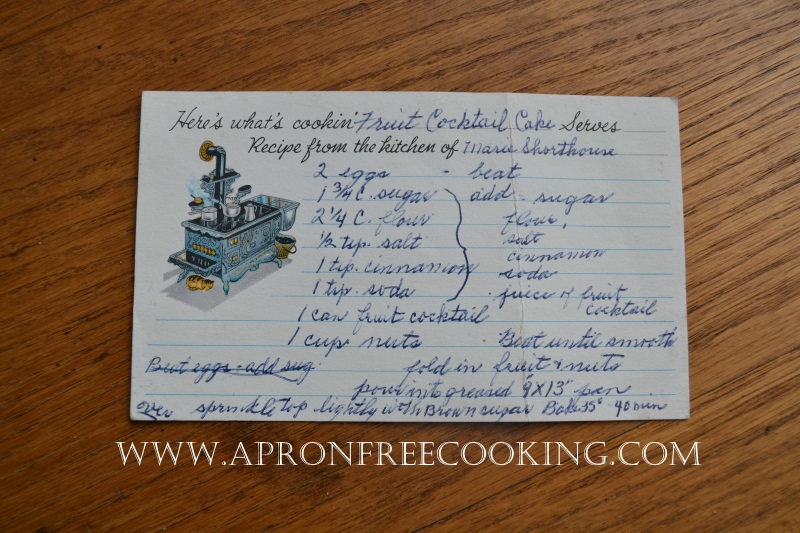 Here's what's cookin' Fruit Cocktail Cake Serves
Recipe from the kitchen of Marie Shorthouse
2 eggs - beat
1 3/4 C. sugar add - sugar
2 1/4 C. flour flour,
1/2 tsp. salt salt
cinnamon
1 tsp. cinnamon soda
1 tsp. soda juice of fruit cocktail
1 can fruit cocktail
1 cup nuts Beat until smooth
Beat eggs - add sug. fold in fruit & nuts
pour into greased "9X13" pan
Over sprinkle top lightly with Brown sugar Bake 35° 40 min
WWW.APRONFREECOOKING.COM